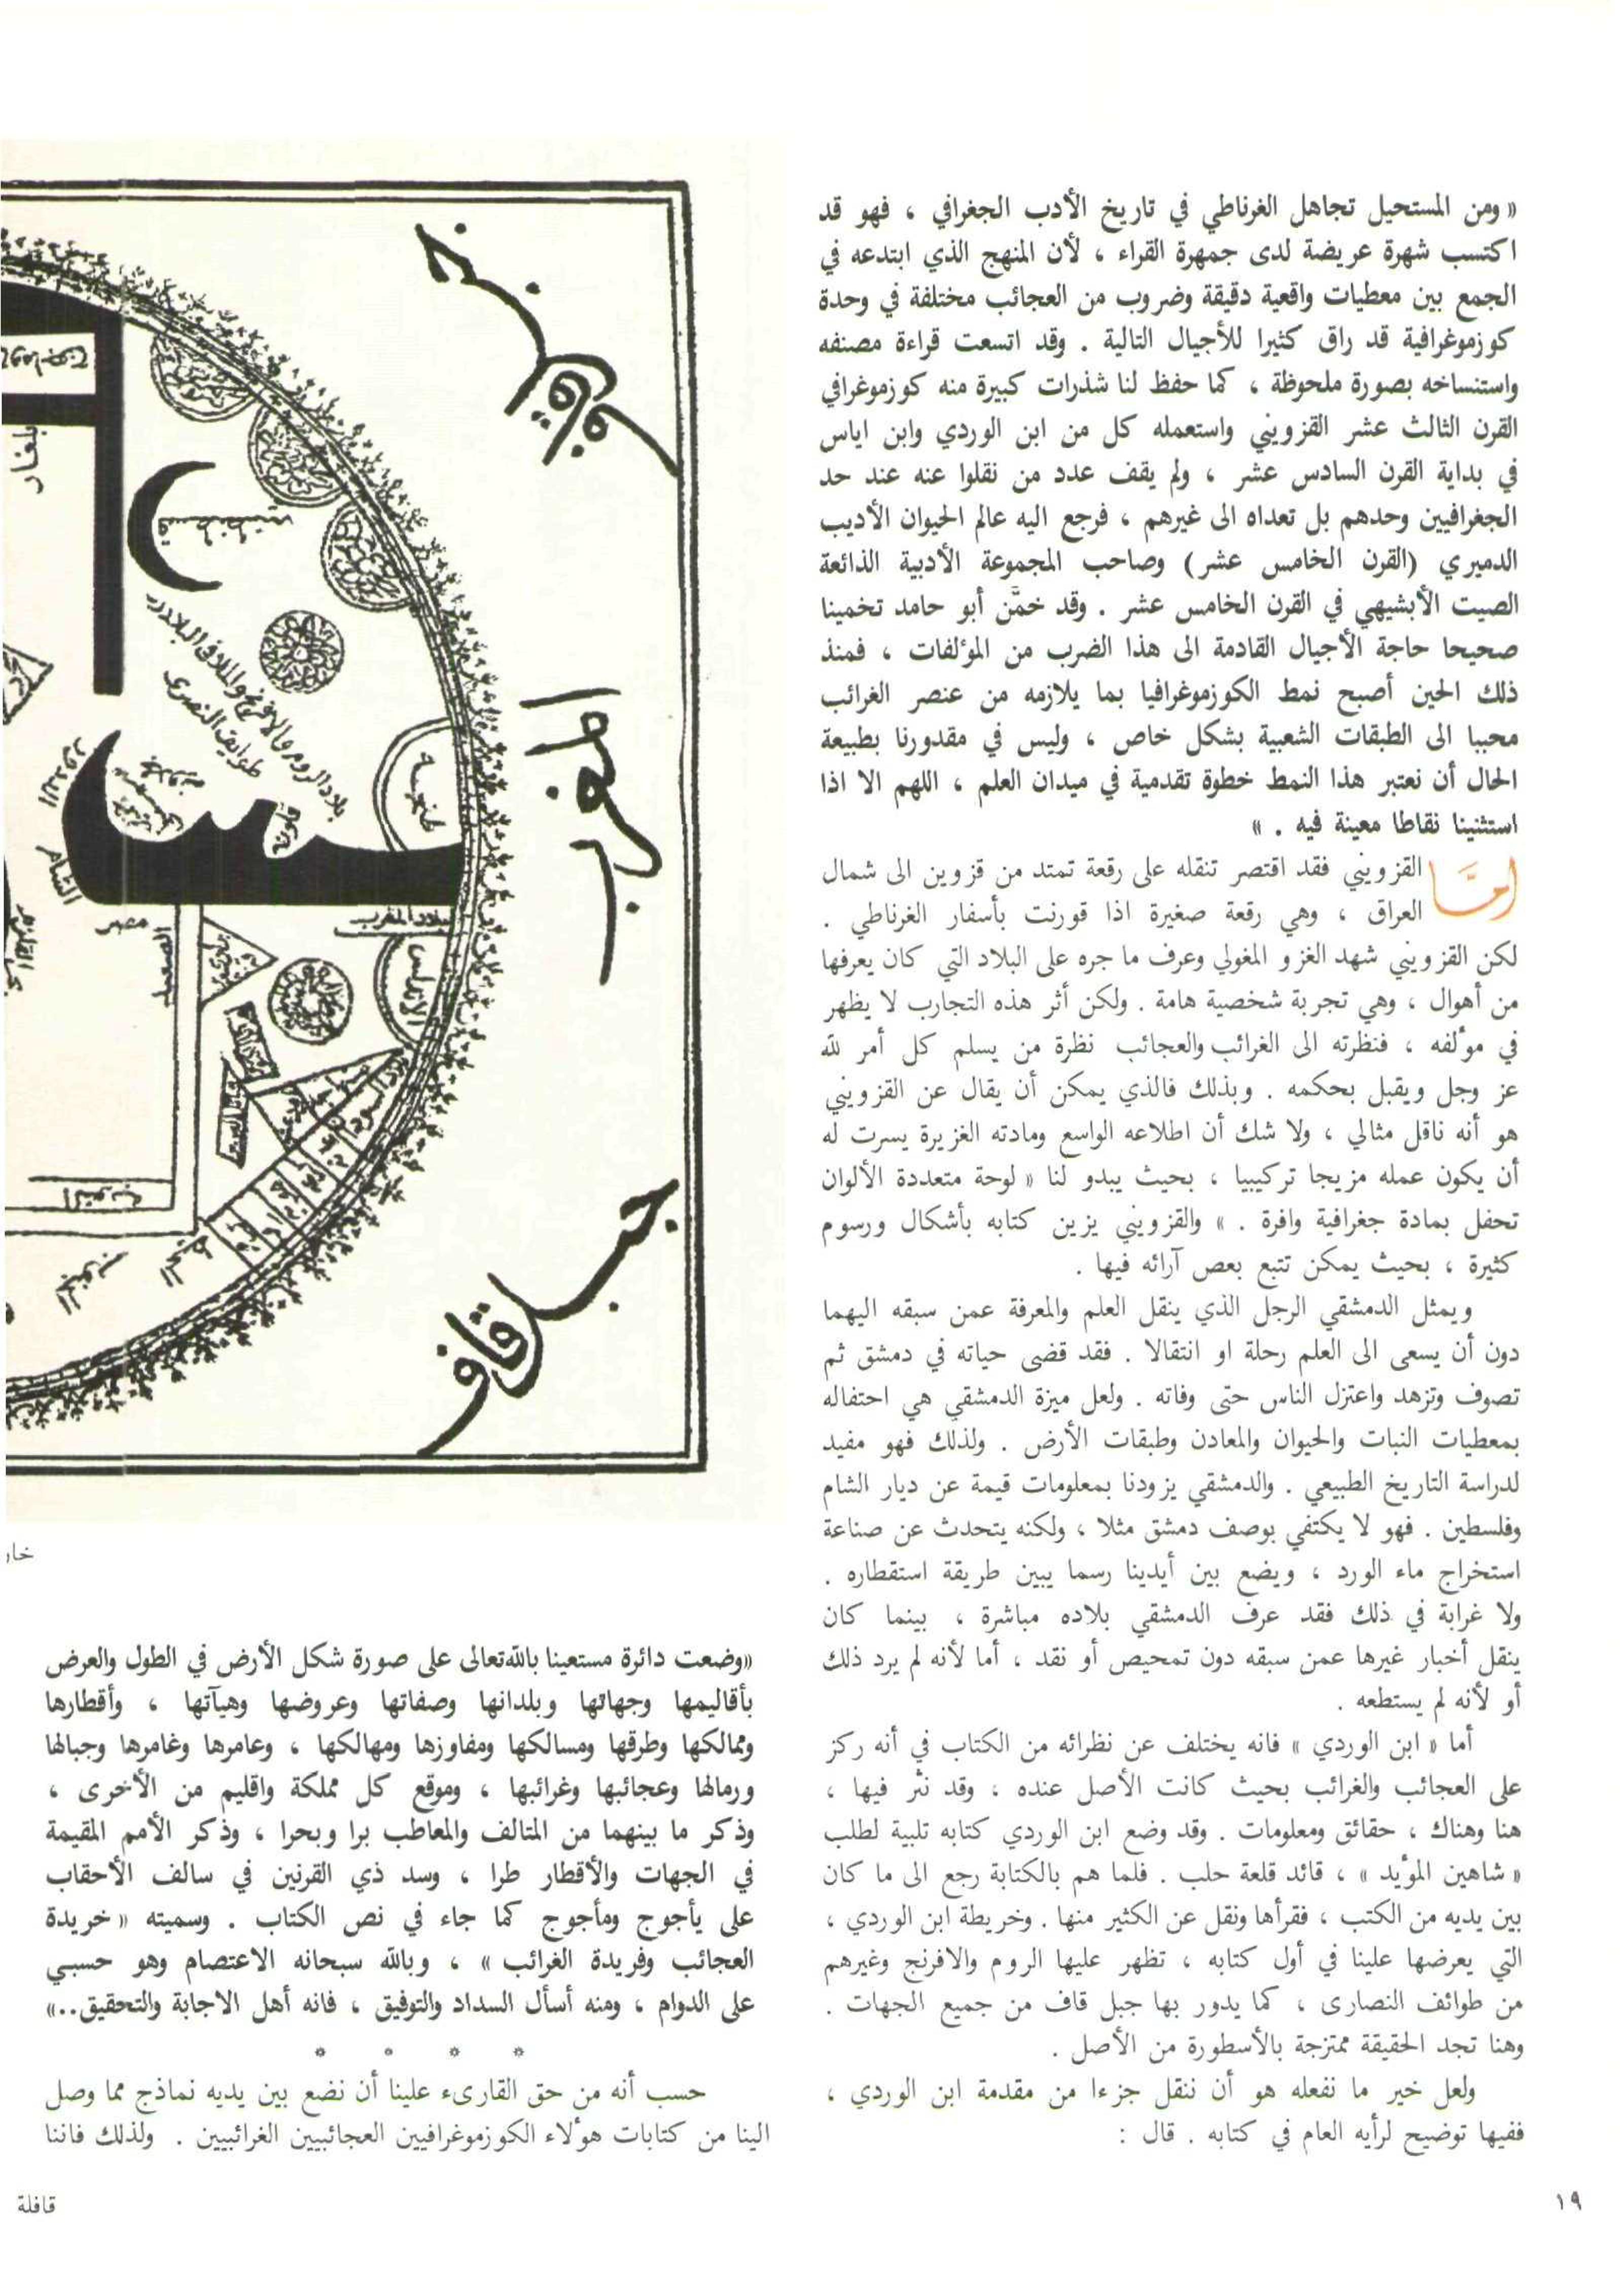 « ومن المستحيل تجاهل الغرناطي في تاريخ الأدب الجغرافي ، فهو قد
اكتسب شهرة عريضة لدى جمهرة القراء ، لأن المنهج الذي ابتدعه في
الجمع بين معطيات واقعية دقيقة وضروب من العجائب مختلفة في وحدة
كوزموغرافية قد راق كثيرا للأجيال التالية . وقد اتسعت قراءة مصنفه
واستنساخه بصورة ملحوظة ، كما حفظ لنا شذرات كبيرة منه كوزموغرافي
القرن الثالث عشر القزويني واستعمله كل من ابن الوردي وابن اياس
في بداية القرن السادس عشر ، ولم يقف عدد من نقلوا عنه عند حد
الجغرافيين وحدهم بل تعداه الى غيرهم ، فرجع اليه عالم الحيوان الأديب
الدميري (القرن الخامس عشر) وصاحب المجموعة الأدبية الذائعة
الصيت الأبشيهي في القرن الخامس عشر . وقد خمَّن أبو حامد تخمينا
صحيحا حاجة الأجيال القادمة الى هذا الضرب من المؤلفات ، فمنذ
ذلك الحين أصبح نمط الكوزموغرافيا بما يلازمه من عنصر الغرائب
محببا الى الطبقات الشعبية بشكل خاص ، وليس في مقدورنا بطبيعة
الحال أن نعتبر هذا النمط خطوة تقدمية في ميدان العلم ، اللهم الا اذا
استثنينا نقاطا معينة فيه . »
أمَّا القزويني فقد اقتصر تنقله على رقعة تمتد من قزوين الى شمال
العراق ، وهي رقعة صغيرة اذا قورنت بأسفار الغرناطي .
لكن القزويني شهد الغزو المغولي وعرف ما جره على البلاد التي كان يعرفها
من أهوال ، وهي تجربة شخصية هامة . ولكن أثر هذه التجارب لا يظهر
في مؤلفه ، فنظرته الى الغرائب والعجائب نظرة من يسلم كل أمر لله
عز وجل ويقبل بحكمه . وبذلك فالذي يمكن أن يقال عن القزويني
هو أنه ناقل مثالي ، ولا شك أن اطلاعه الواسع ومادته الغزيرة يسرت له
أن يكون عمله مزيجا تركيبيا ، بحيث يبدو لنا « لوحة متعددة الألوان
تحفل بمادة جغرافية وافرة . » والقزويني يزين كتابه بأشكال ورسوم
كثيرة ، بحيث يمكن تتبع بعض آرائه فيها .
ويمثل الدمشقي الرجل الذي ينقل العلم والمعرفة عمن سبقه اليهما
دون أن يسعى الى العلم رحلة او انتقالا . فقد قضى حياته في دمشق ثم
تصوف وتزهد واعتزل الناس حتى وفاته . ولعل ميزة الدمشقي هي احتفاله
بمعطيات النبات والحيوان والمعادن وطبقات الأرض . ولذلك فهو مفيد
لدراسة التاريخ الطبيعي . والدمشقي يزودنا بمعلومات قيمة عن ديار الشام
وفلسطين . فهو لا يكتفي بوصف دمشق مثلا ، ولكنه يتحدث عن صناعة
استخراج ماء الورد ، ويضع بين أيدينا رسما يبين طريقة استقطاره .
ولا غرابة في ذلك فقد عرف الدمشقي بلاده مباشرة ، بينما كان
ينقل أخبار غيرها عمن سبقه دون تمحيص أو نقد ، أما لأنه لم يرد ذلك
أو لأنه لم يستطعه .
أما « ابن الوردي » فانه يختلف عن نظرائه من الكتاب في أنه ركز
على العجائب والغرائب بحيث كانت الأصل عنده ، وقد نثر فيها ،
هنا وهناك ، حقائق ومعلومات . وقد وضع ابن الوردي كتابه تلبية لطلب
« شاهين المؤيد » ، قائد قلعة حلب . فلما هم بالكتابة رجع الى ما كان
بين يديه من الكتب ، فقرأها ونقل عن الكثير منها . وخريطة ابن الوردي ،
التي يعرضها علينا في أول كتابه ، تظهر عليها الروم والافرنج وغيرهم
من طوائف النصارى ، كما يدور بها جبل قاف من جميع الجهات .
وهنا تجد الحقيقة ممتزجة بالأسطورة من الأصل .
ولعل خير ما نفعله هو أن ننقل جزءا من مقدمة ابن الوردي ،
ففيها توضيح لرأيه العام في كتابه . قال :
المغرب
جبل قاف
قسطنطينية
بلغار
طنجة
بلاد المغرب
الاندلس
الشام
مصر
الصعيد
النوبة
الجنوب
خار
«وضعت دائرة مستعينا بالله تعالى على صورة شكل الأرض في الطول والعرض
بأقاليمها وجهاتها وبلدانها وصفاتها وعروضها وهيآتها ، وأقطارها
وممالكها وطرقها ومسالكها ومفاوزها ومهالكها ، وعامرها وغامرها وجبالها
ورمالها وعجائبها وغرائبها ، وموقع كل مملكة واقليم من الأخرى ،
وذكر ما بينهما من المتالف والمعاطب برا وبحرا ، وذكر الأمم المقيمة
في الجهات والأقطار طرا ، وسد ذي القرنين في سالف الأحقاب
على يأجوج ومأجوج كما جاء في نص الكتاب . وسميته « خريدة
العجائب وفريدة الغرائب » ، وبالله سبحانه الاعتصام وهو حسبي
على الدوام ، ومنه أسأل السداد والتوفيق ، فانه أهل الاجابة والتحقيق..»
* * * *
حسب أنه من حق القارىء علينا أن نضع بين يديه نماذج مما وصل
الينا من كتابات هؤلاء الكوزموغرافيين العجائبيين الغرائبيين . ولذلك فاننا
١٩
قافلة